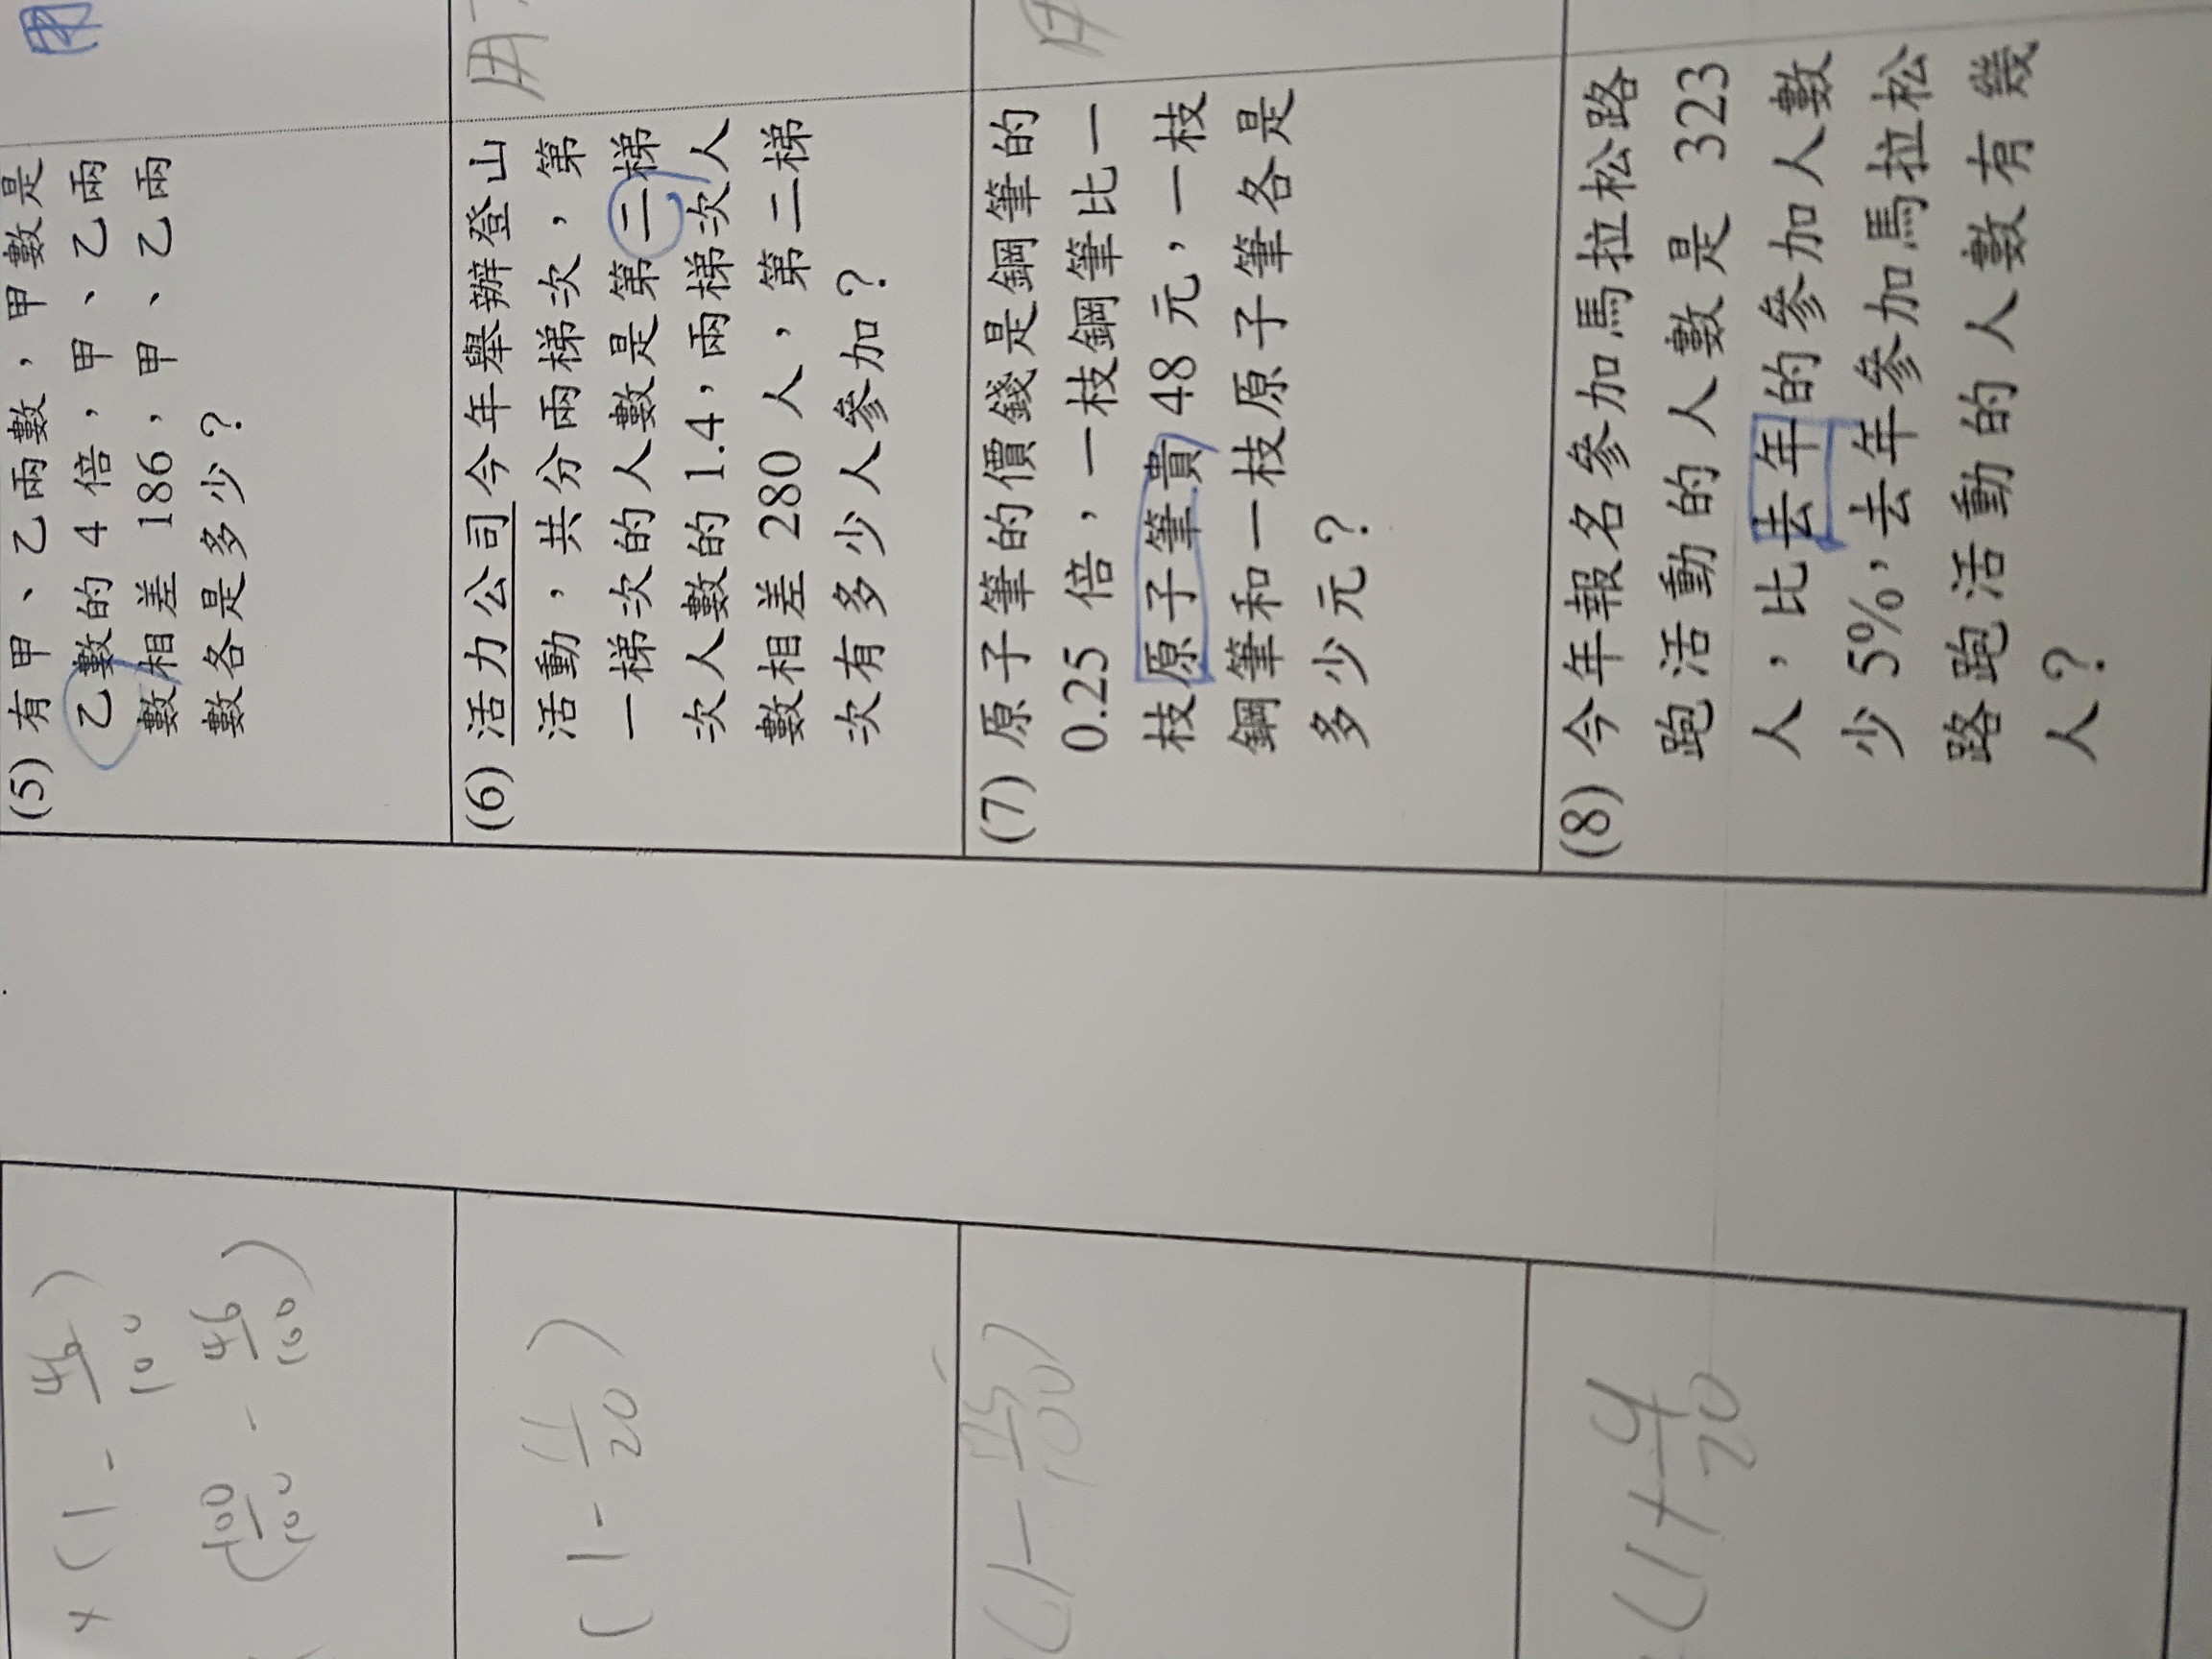 (5) 有甲、乙兩數，甲數是
乙數的 4 倍，甲、乙兩
數相差 186，甲、乙兩
數各是多少？
(6) 活力公司今年舉辦登山
活動，共分兩梯次，第
一梯次的人數是第二梯
次人數的 1.4，兩梯次人
數相差 280 人，第二梯
次有多少人參加？
(7) 原子筆的價錢是鋼筆的
0.25 倍，一枝鋼筆比一
枝原子筆貴 48 元，一枝
鋼筆和一枝原子筆各是
多少元？
(8) 今年報名參加馬拉松路
跑活動的人數是 323
人，比去年的參加人數
少 5%，去年參加馬拉松
路跑活動的人數有幾
人？
× (1 - 46/100)
(100/100 - 46/100)
(1 - 11/20)
(1 - 15/100)
(1 + 4/20